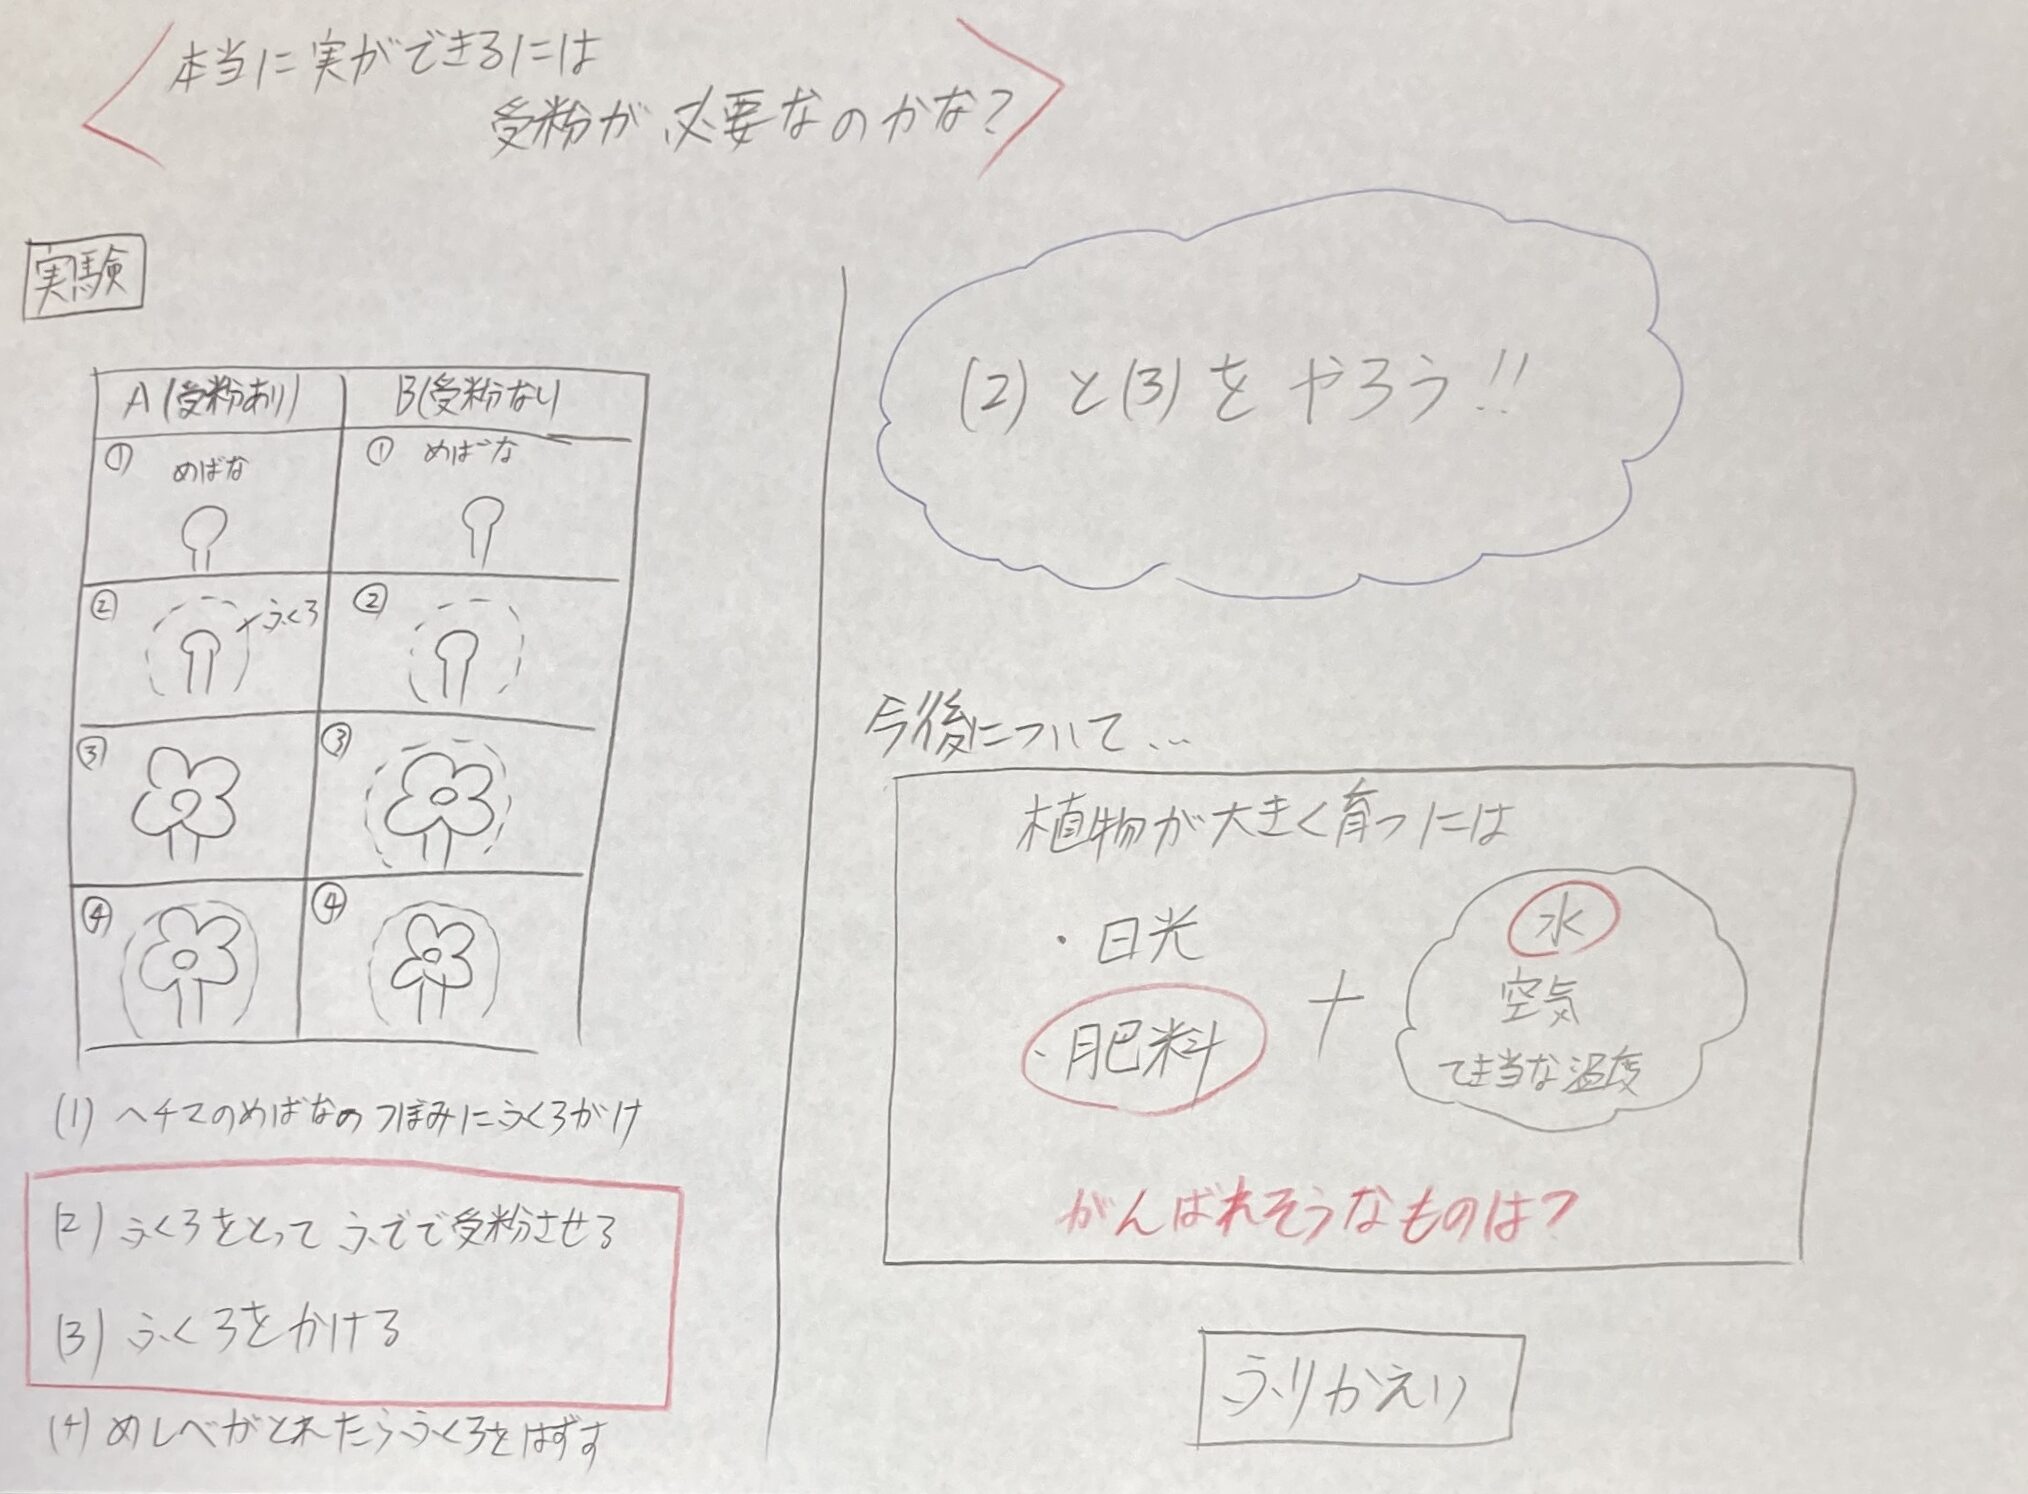 本当に実ができるには
受粉が必要なのかな?
実験
A(受粉あり) B(受粉なし)
① めばな ① めばな
② ふくろ ②
③ ③
④ ④
(1) ヘチマのめばなのつぼみにふくろがけ
(2) ふくろをとってふでで受粉させる
(3) ふくろをかける
(4) めしべがとれたらふくろをはずす
(2)と(3)をやろう!!
今後について...
植物が大きく育つには
・日光
・肥料
+
水
空気
てき当な温度
がんばれそうなものは?
ふりかえり